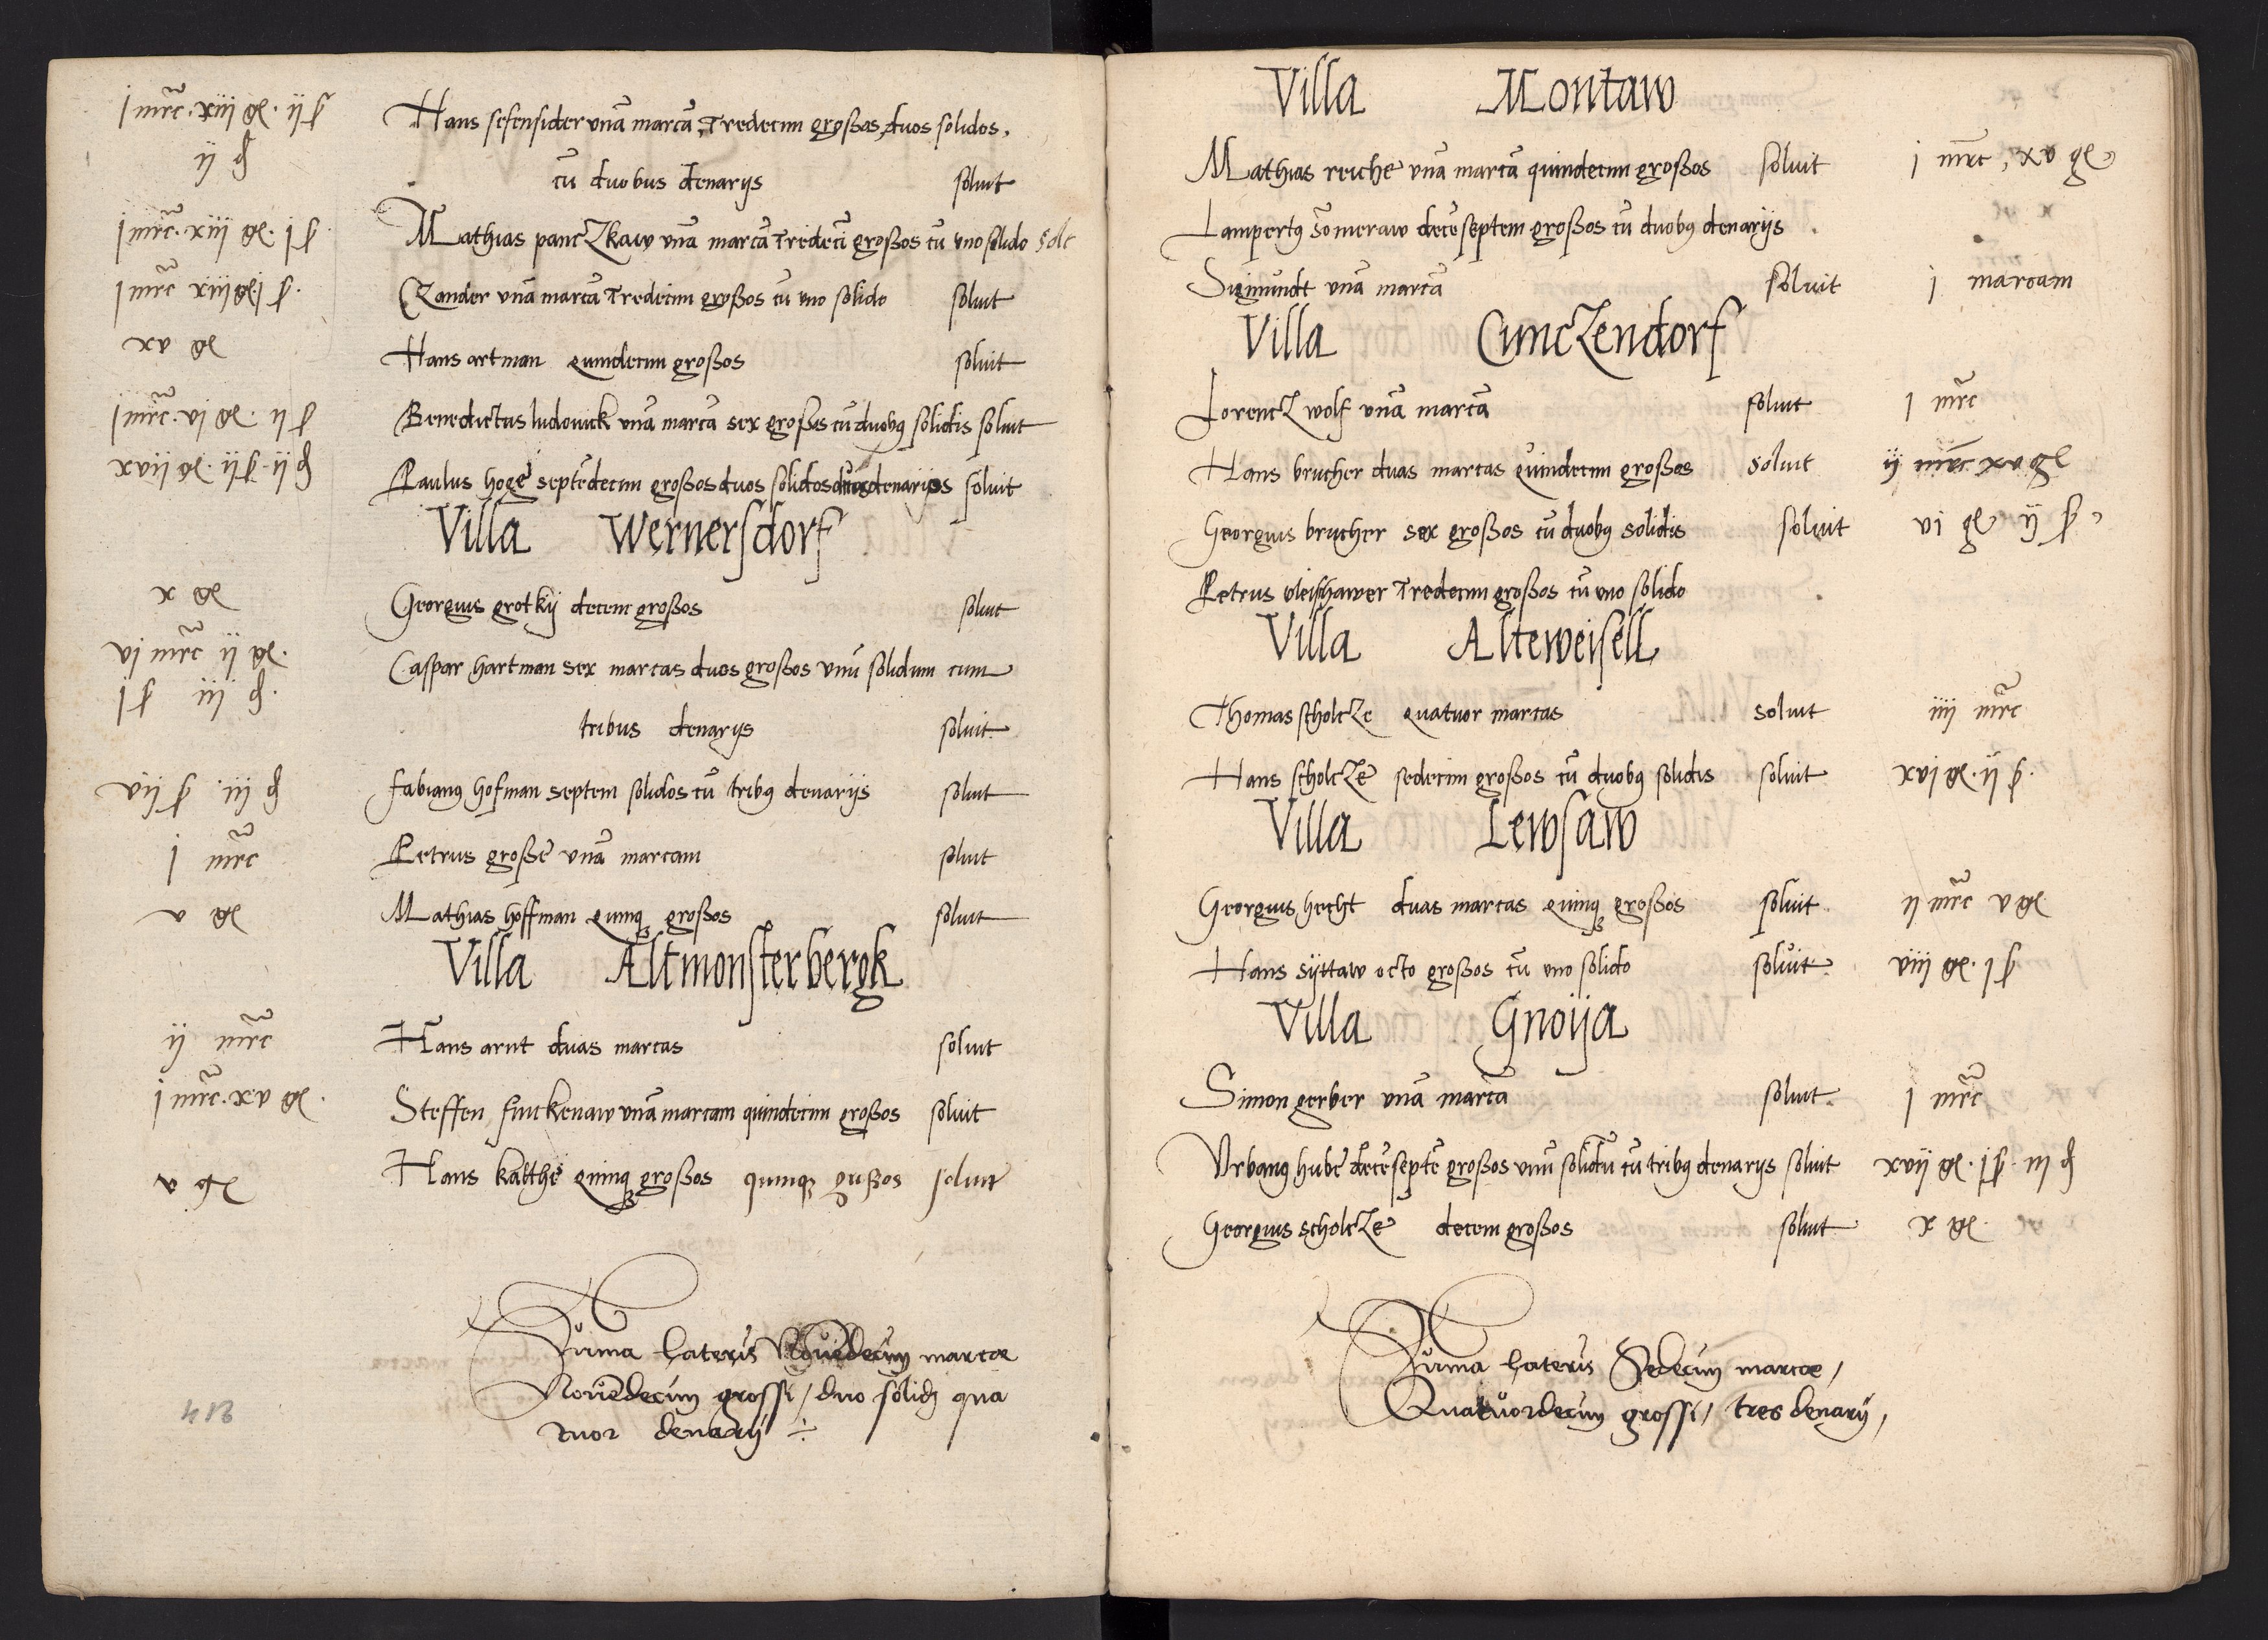 Hans sefensider vnā marcā, Tredecim großos, duos solidos,
j mrc. xiij gͦ. ij ſ
cū duobus denarijs soluit
ij ₰
Mathias panczkaw vnā marcā Tredeci großos cū vno solido solt
j mrc. xiij gͦ. j ſ
Czander vnā marcā Tredecim großos cū vno solido soluit
j mrc xiij gͦ j ſ.
Hans artman quindecim großos soluit
xv gͦ
Benedictus ludouick vnā marcā sex großos cū duobꝯ solidis soluit
j mrc. vj gͦ. ij ſ
Paulus hoge septēdecim großos duos solidos duos denarijos soluit
xvij gͦ. ij ſ ij ₰
Villa Wernersdorf
Georgius grotkij decem großos soluit
x gͦ
Caspar hartman sex marcas duos großos vnū solidum cum
vj mrc ij gͦ.
tribus denarijs soluit
j ſ iij ₰.
fabianꝯ hofman septem solidos cū tribꝯ denarijs soluit
vij ſ iij ₰
Petrus große vnā marcam soluit
j mrc
Mathias hoffman quinqꝫ großos soluit
v gͦ
Villa Altmonsterbergk
Hans arnt duas marcas soluit
ij mrc
Steffen finckenaw vnā marcam quindecim großos soluit
j mrc. xv gͦ.
Hans kalthe quinqꝫ großos quinqꝫ großos soluit
v gͦ
Suma Lateris Nouēdecim marcae
Nouēdecim grossi / duo solidj qua
tuor denarij ÷
214
Villa Montaw
Mathias reiche vnā marcā quindecim großos soluit j mrc, xv gͦ
Lampertꝯ someraw deceseptem großos cū duobꝯ denarijs
Sigimundt vnā marcā soluit j marcam
Villa Cunczendorf
Lorencz wolf vnā marcā soluit j mrc
Hans brucher duas marcas quindecim großos soluit ij mrc xv gͦ
Georgius brucher sex großos cū duobꝯ solidis soluit vj gͦ ij ſ
Petrus vleischawer Tredecim großos cū vno solido
Villa Alteweisell
Thomas scholcze quatuor marcas soluit iiij mrc
Hans scholcze sedecim großos cū duobꝯ solidis soluit xvj gͦ. ij ſ.
Villa Lewsaw
Georgius hecht duas marcas quinqꝫ großos soluit ij mrc v gͦ.
Hans syttaw octo großos cū vno solido soluit viij gͦ. j ſ
Villa Gnoija
Simon gerber vnā marcā soluit j mrc
Vrbanꝯ hube deceseptē großos vnū solidū cū tribꝯ denarijs soluit xvij gͦ. j ſ. iij ₰
Georgius scholcze decem großos soluit x gͦ.
Suma Lateris Sedecim marcae /
Quatuordecim grossi / tres denarij /